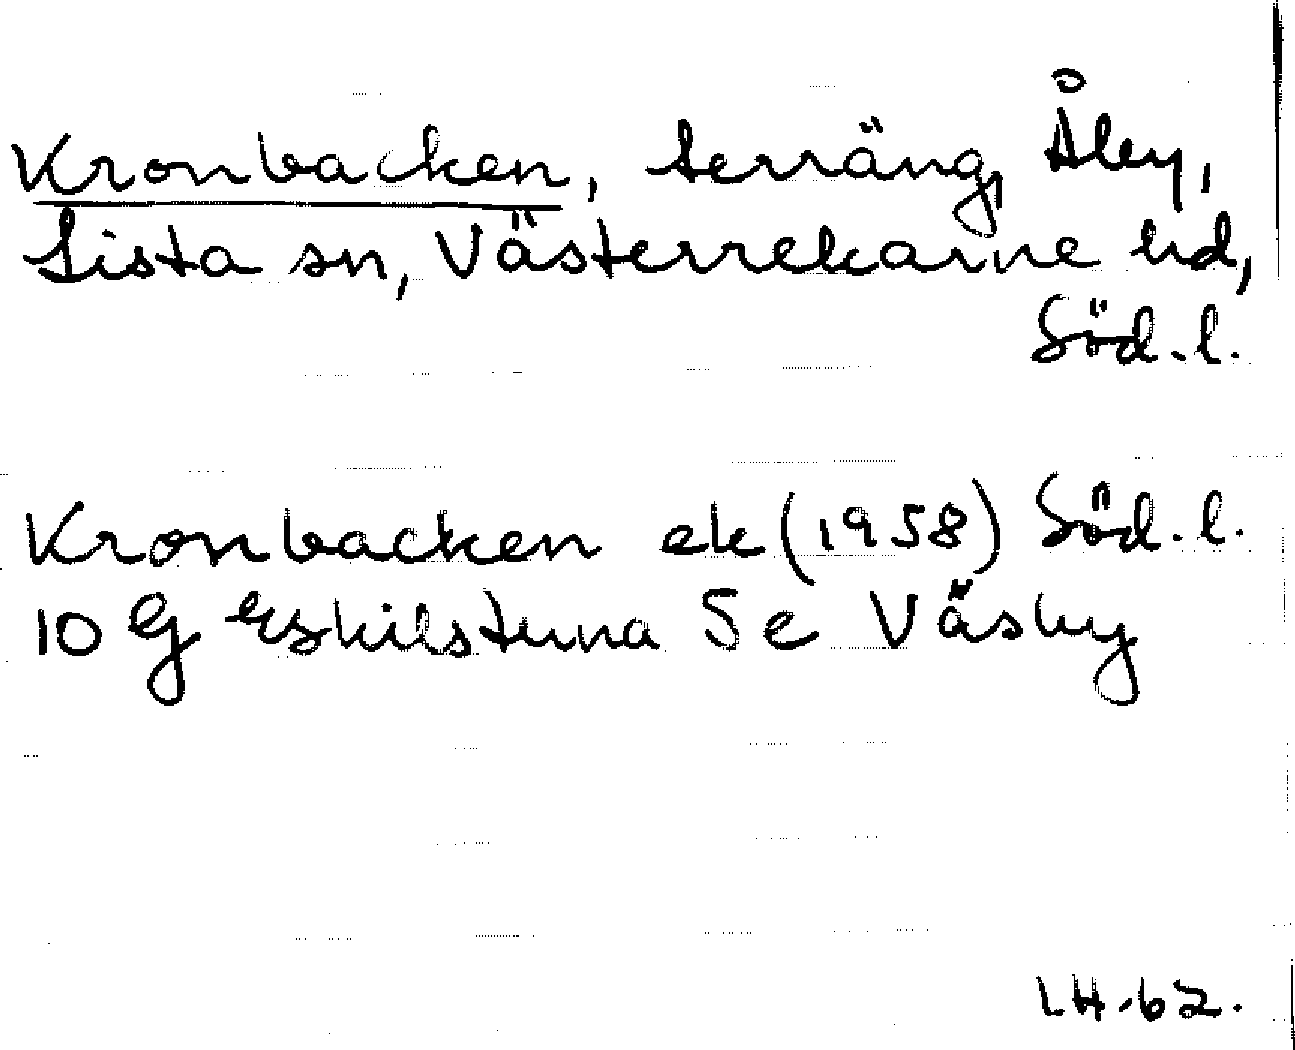 Kronbacken, terräng, Åby,
Lista sn, Västerrekarne hd,
Söd.l.
Kronbacken ek (1958) Söd.l.
10 G Eskilstuna 5 e Väsby
LH-62.